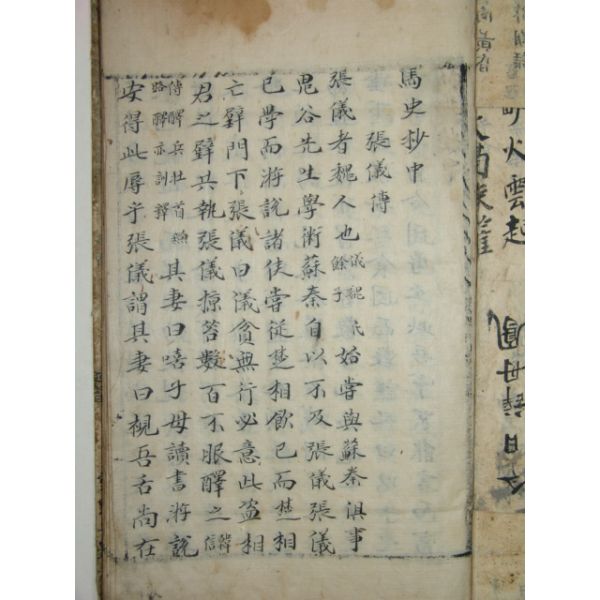 馬史抄中
張儀傳
張儀者魏人也儀魏氏餘子始嘗與蘇秦俱事
鬼谷先生學術蘇秦自以不及張儀張儀
已學而游說諸侯嘗從楚相飮已而楚相
亡璧門下張儀曰儀貧無行必意此盗相
君之璧共執張儀掠笞數百不服醳之韓信
傳醳兵北首燕路醳亦訓釋其妻曰嘻子毋讀書游說
安得此辱乎張儀謂其妻曰視吾舌尚在
火雲起